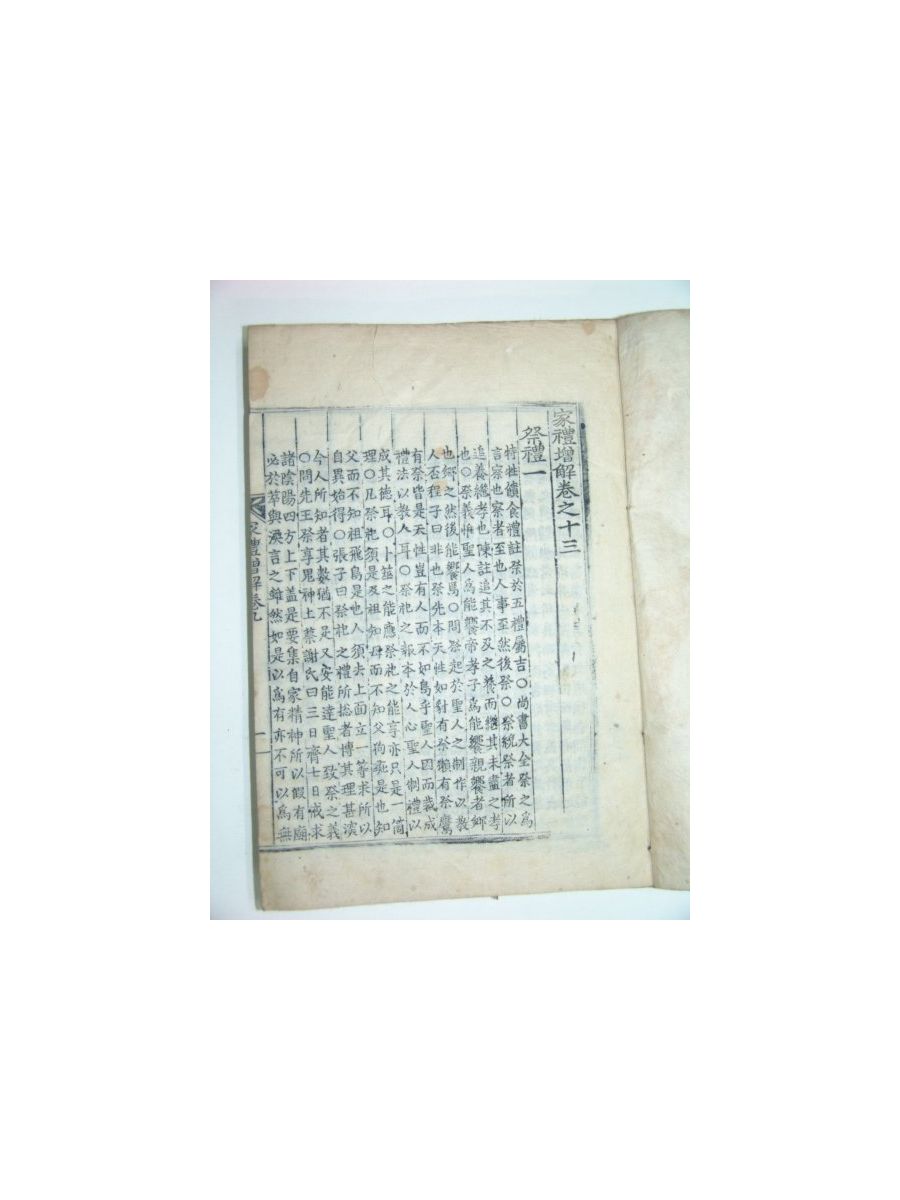 家禮增解卷之十三
祭禮一
特牲饋食禮註祭於五禮屬吉○尚書大全祭之爲
言察也察者至也人事至然後祭○祭統祭者所以
追養繼孝也陳註追其不及之養而繼其未盡之孝
也○祭義惟聖人爲能饗帝孝子爲能饗親饗者鄉
也鄉之然後能饗焉○問祭起於聖人之制作以敎
人否程子曰非也祭先本天性如豺有祭獺有祭鷹
有祭皆是天性豈有人而不如鳥乎聖人因而裁成
禮法以敎人耳○祭祀之報本於人心聖人制禮以
成其德耳○卜筮之能應祭祀之能享亦只是一箇
理○凡祭祀須是及祖知母而不知父狗彘是也知
父而不知祖飛鳥是也人須去上面立一等求所以
自異始得○張子曰祭祀之禮所捴者博其理甚深
今人所知者其數猶不足又安能達聖人致祭之義
○問先王祭享鬼神上蔡謝氏曰三日齊七日戒求
諸陰陽四方上下盖是要集自家精神所以假有廟
必於萃與渙言之雖然如是以爲有亦不可以爲無
家禮增解卷九